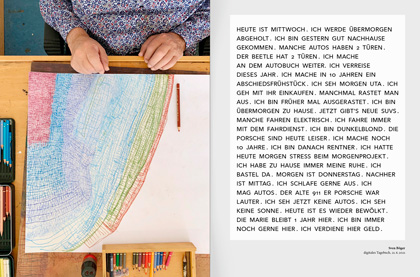 HEUTE IST MITTWOCH. ICH WERDE ÜBERMORGEN
ABGEHOLT. ICH BIN GESTERN GUT NACHHAUSE
GEKOMMEN. MANCHE AUTOS HABEN 2 TÜREN.
DER BEETLE HAT 2 TÜREN. ICH MACHE
AN DEM AUTOBUCH WEITER. ICH VERREISE
DIESES JAHR. ICH MACHE IN 10 JAHREN EIN
ABSCHIEDSFRÜHSTÜCK. ICH SEH MORGEN UTA. ICH
GEH MIT IHR EINKAUFEN. MANCHMAL RASTET MAN
AUS. ICH BIN FRÜHER MAL AUSGERASTET. ICH BIN
ÜBERMORGEN ZU HAUSE. JETZT GIBT'S NEUE SUVS.
MANCHE FAHREN ELEKTRISCH. ICH FAHRE IMMER
MIT DEM FAHRDIENST. ICH BIN DUNKELBLOND. DIE
PORSCHE SIND HEUTE LEISER. ICH MACHE NOCH
10 JAHRE. ICH BIN DANACH RENTNER. ICH HATTE
HEUTE MORGEN STRESS BEIM MORGENPROJEKT.
ICH HABE ZU HAUSE IMMER MEINE RUHE. ICH
BASTEL DA. MORGEN IST DONNERSTAG. NACHHER
IST MITTAG. ICH SCHLAFE GERNE AUS. ICH
MAG AUTOS. DER ALTE 911 ER PORSCHE WAR
LAUTER. ICH SEH JETZT KEINE AUTOS. ICH SEH
KEINE SONNE. HEUTE IST ES WIEDER BEWÖLKT.
DIE MARIE BLEIBT 1 JAHR HIER. ICH BIN IMMER
NOCH GERNE HIER. ICH VERDIENE HIER GELD.
digitales Tagebuch,